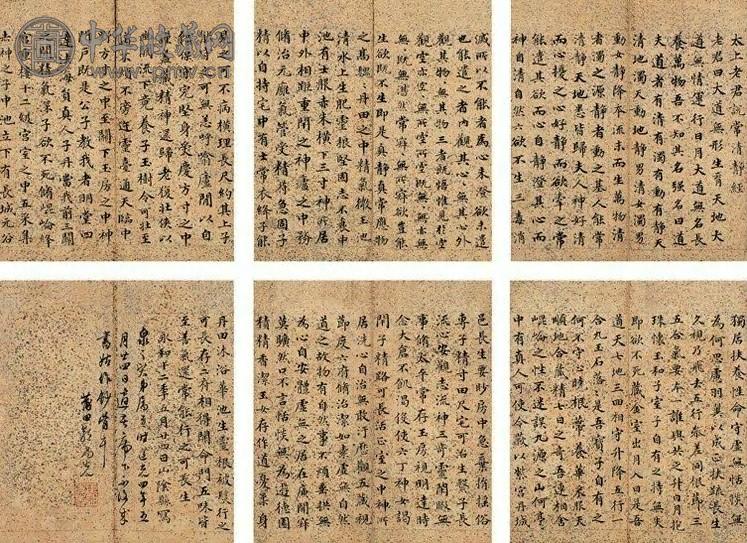 太上老君說常清靜經
老君曰大道無形生育天地大
道無情運行日月大道無名長
養萬物吾不知其名强名曰道
夫道者有清有濁有動有靜天
清地濁天動地靜男清女濁男
動女靜降本流末而生萬物清
者濁之源靜者動之基人能常
清靜天地悉皆歸夫人神好清
而心擾之心好靜而欲牽之常
能遣其欲而心自靜澄其心而
神自清自然六欲不生三毒消
滅所以不能者爲心未澄欲未遣
也能遣之者內觀其心無其心外
觀其物無其物三者既悟惟見於空
觀空以空空無所空所空既無無無亦無
無無既無湛然常寂寂無所寂欲豈能
生欲既不生即是真靜真常應物
之高樓丹田之中精氣微玉池
清水上生肥靈根堅固志不衰中
池有士服赤朱橫下三寸神所居
中外相距重閉之神廬之中務
脩治玄癰氣管受精符急固子
精以自持宅中有士常衣絳子能
見之可不病橫理長尺約其上子
能守之可無恙呼噏廬間以自
償保守完堅身受慶方寸之中
謹蓋藏精神還歸老復壯俠以
幽闕流下竟養子玉樹令可壯至
道不煩不旁迕靈臺通天臨中
野方寸之中至關下玉房之中神
門戶既是公子教我者明堂四
達法海員真人子丹當我前三關
之間精氣深子欲不死脩崐崘絳
宮重樓十二級宮室之中五采集
赤神之子中池立下有長城玄谷
獨居扶養性命守虛無恬惔無
為何思慮羽翼以成正扶疏長生
久視乃飛去五行參差同根節三
五合氣要本一誰與共之升日月抱
珠懷玉和子室子自有之持無失
即欲不死藏金室出月入日是吾
道天七地三回相守升降五行一
合九玉石落落是吾寶子自有之
何不守心曉根蔕養華采服天
順地合藏精七日之奇吾連相舍
崐崘之性不迷誤九源之山何亭
中有真人可使令蔽以紫宮丹城
邑長生要眇房中急棄捐搖俗
專子精寸田尺宅可治生繫子長
流心安觀志流神三奇靈閒暇無
事脩太平常存玉房視明達時
念大倉不飢渴役使六丁神女謁
閉子精路可長活正室之中神所
居洗心自治無敢汙歷觀五藏視
節度六府脩治潔如素虛無自然
道之故物有自然事不煩垂拱無
為心自安體虛無之居在廉間寂
莫曠然口不言恬惔無為遊德園
精精香潔玉女存作道身單身
丹田沐浴華池生靈根被髮行之
可長存二府相得開命門五味皆
至善氣還常能行之可長生
永和十二年五月廿四日山陰縣寫
月廿四日
中华收藏网